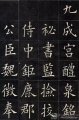 九成宮醴泉銘
秘書監檢挍
侍中鉅鹿郡
公臣魏徵奉